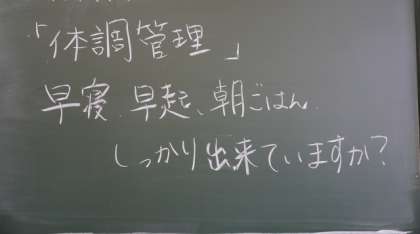 「体調管理」
早寝、早起、朝ごはん、
しっかり出来ていますか?